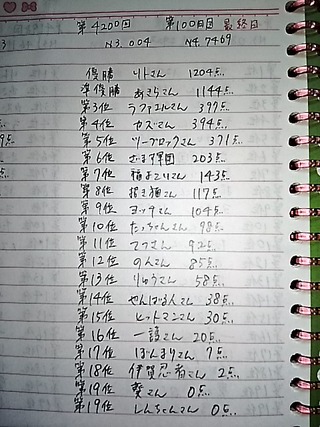 第4200回 第100日目 最終日
N3,004 N4,7469
優勝 リトさん 1204点
準優勝 あきらさん 1144点
第3位 ラファエルさん 397点
第4位 カズさん 394点
第5位 ツーブロックさん 371点
第6位 軍団 203点
第7位 さん 143点
第8位 招き猫さん 117点
第9位 ヨッサさん 104点
第10位 たっちゃんさん 98点
第11位 てつさん 92点
第12位 のんさん 85点
第13位 りゅうさん 58点
第14位 やんばる人さん 38点
第15位 ヒットマンさん 30点
第16位 一語さん 20点
第17位 ほんまりさん 7点
第18位 伊賀忍者さん 2点
第19位 さん 0点
第19位 しんちゃんさん 0点